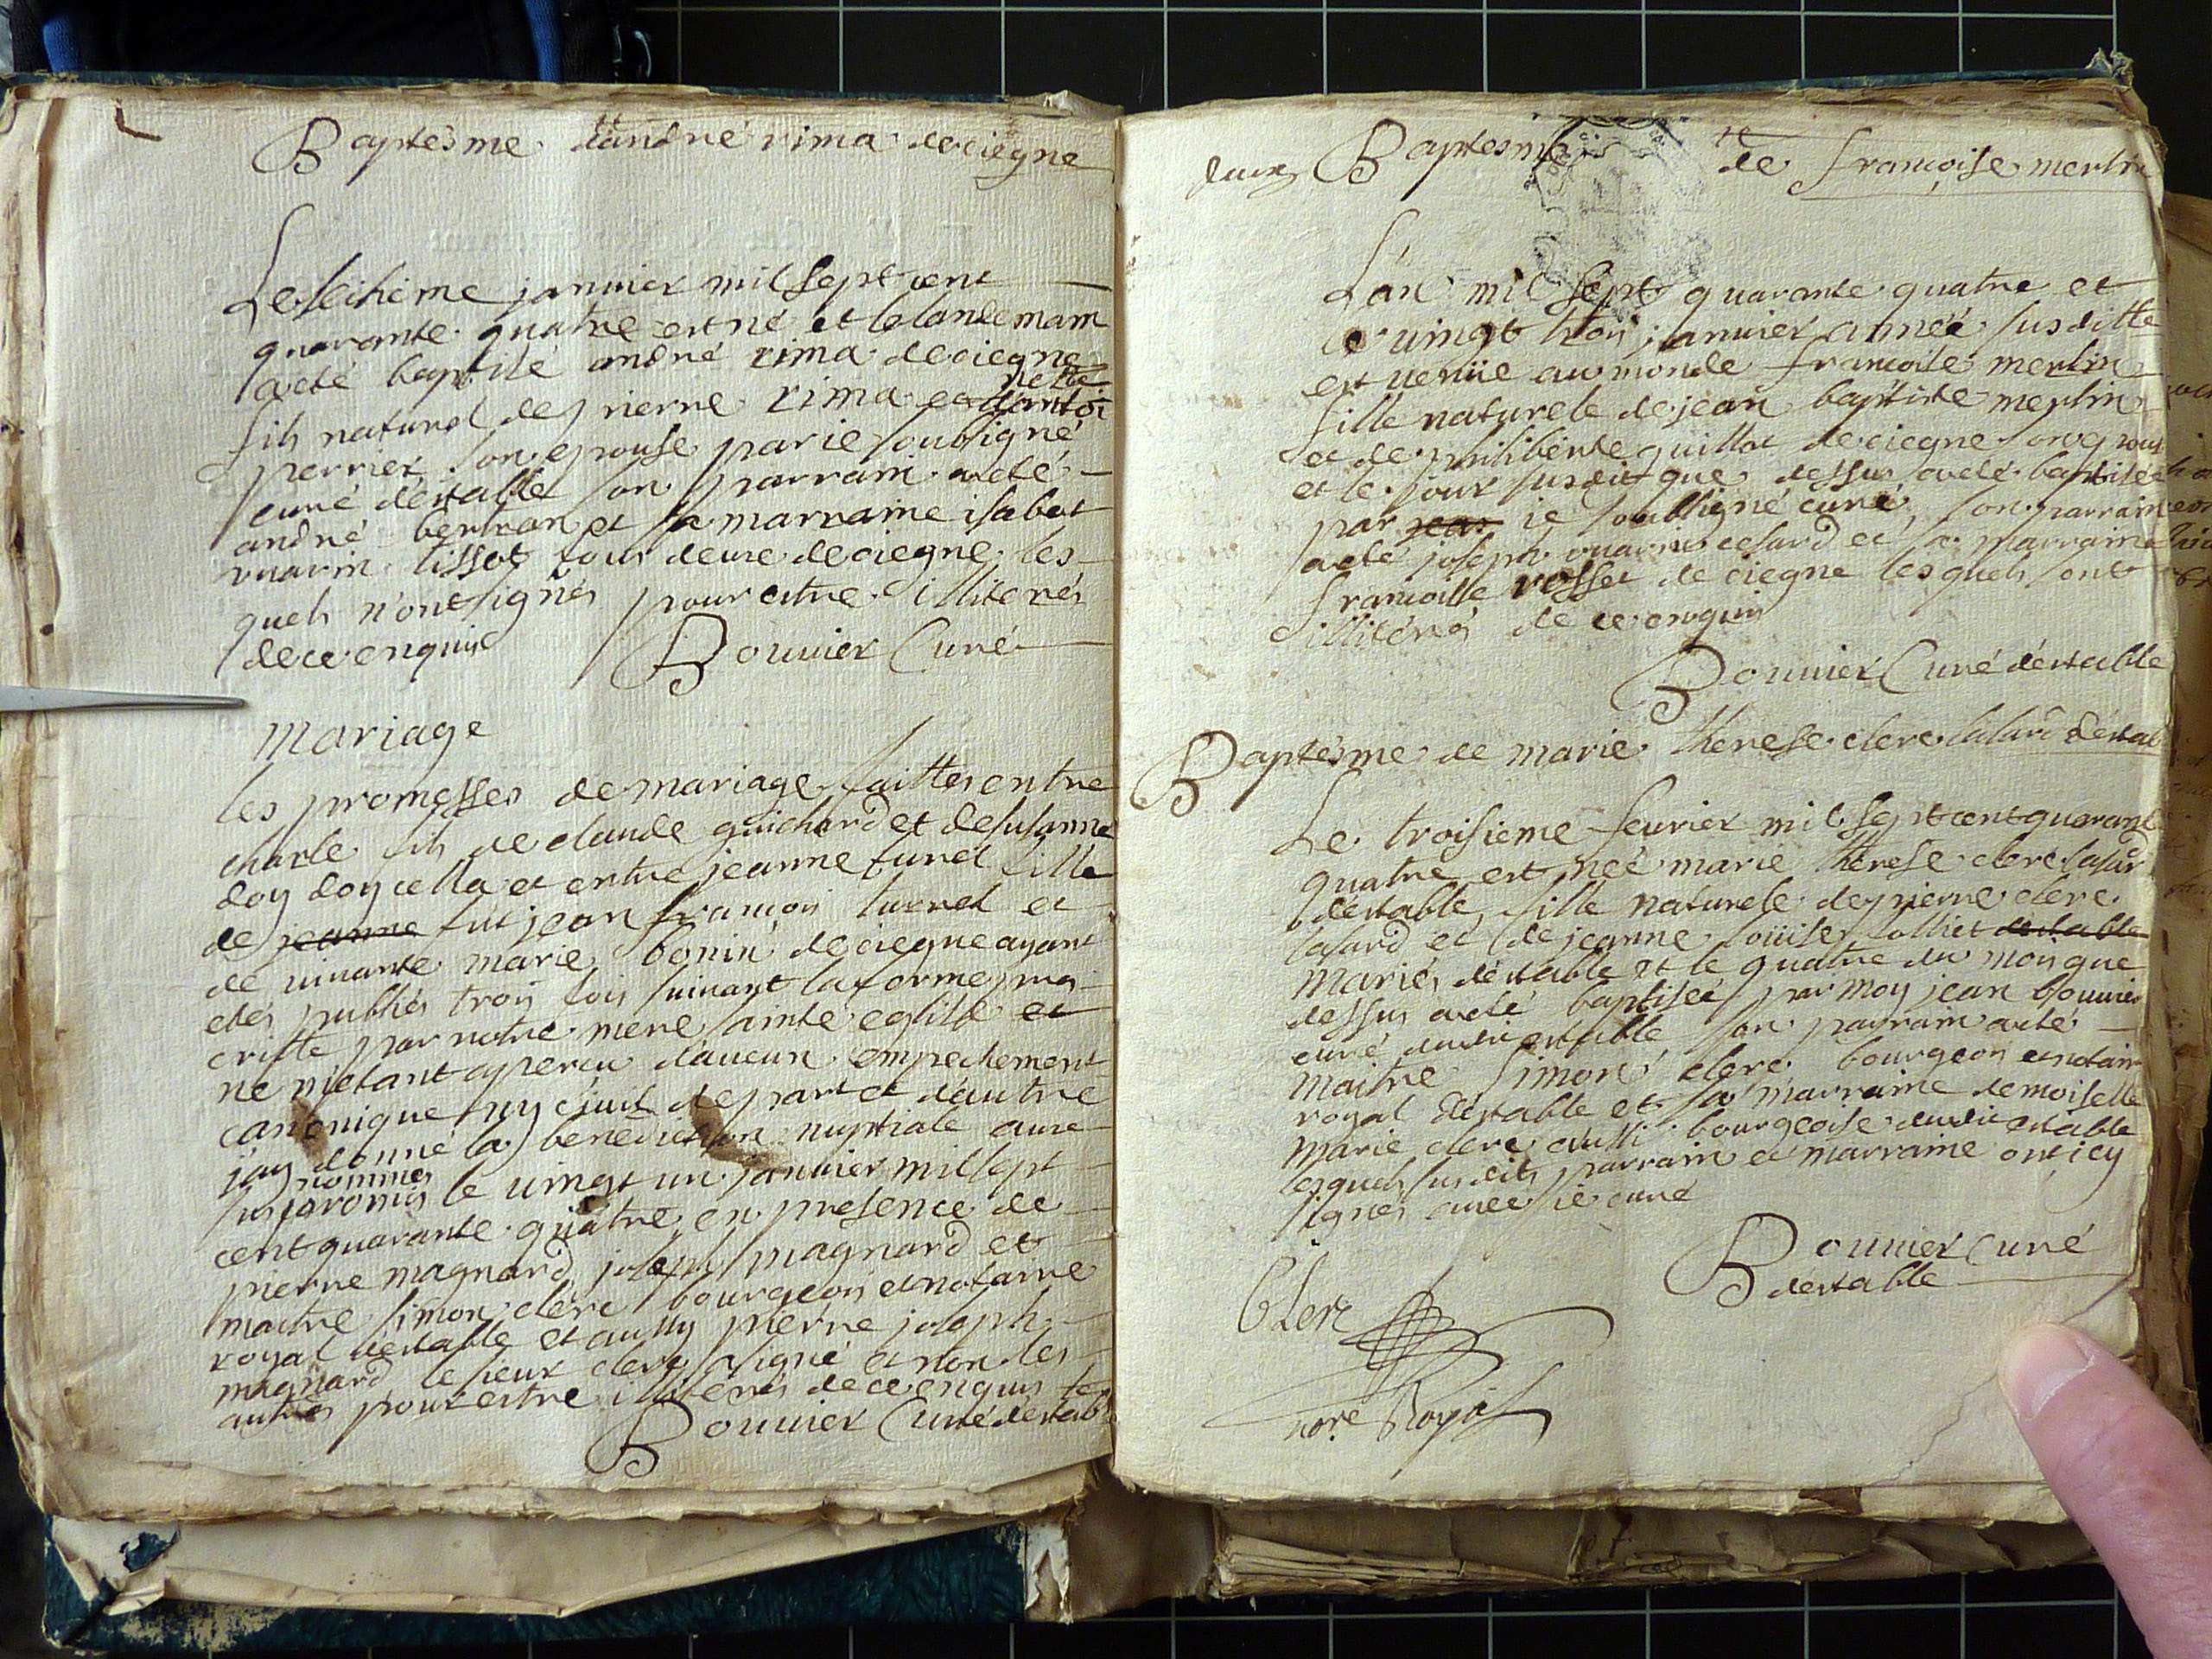 Baptesme d'andré rima de ciegne
Le seihieme janvier mil sept cent
quarante quatre est né et le landemam
a eté baptisé andré rima de ciegne
fils naturel de pierre rima et
perrier son epouse par ie soubsigné
curé destable son parrain a eté
andré bertran et sa marraine isabet
vuarin tissot tous deux de ciegne les
quels n'ont signés pour estre illiterés
de ce enquis Bouvier Curé
mariage
les promesses de mariage faittes entre
charle fils de claude guichard et de susanne
doy doycella et entre jeanne turrel fille
de jeanne fut jean françois turrel et
de vivante marie bonin de ciegne ayant
etés publiés trois fois suivant la forme pres
critte par notre mere sainte eglise et
ne m'etant aperçu d'aucun empechement
canonique ny civil de part et d'autre
j'ay donné la benediction nuptiale aux
nommés
suspromis le vingt un janvier mil sept
cent quarante quatre en presence de
pierre magnard joseph magnard et
maitre simon clerc bourgeois et notaire
royal destable et aussy pierre joseph
magnard le sieur clerc a signé et non les
autres pour estre illiterés de ce enquis
Bouvier Curé destabl
Baptesme de françoise merlin
L'an mil sept quarante quatre et
vingt trois janvier année susditte
est venüe au monde francoise merlin
fille naturele de jean baptiste merlin
et de philiberte guillot de ciegne son epous
et le jour susdit que dessus a eté baptisée
par jean ie soubsigné curé, son parrain
a eté joseph vuarin cesard et sa marraine
francoise rosset de ciegne lesquels sont
illiterés de ce enquis
Bouvier Curé destable
Baptesme de marie therese clerc lasard destab
Le troisieme fevrier mil sept cent quarante
quatre est née marie therese clerc lasard
destable, fille naturele de pierre clerc
lasard et de jeanne loüise colliet destable
mariés destable et le quatre du mois que
dessus a eté baptisée par moy jean bouvier
curé dudit estable son parrain a eté
maitre simon clerc bourgeois et notaire
royal destable et sa marraine demoiselle
marie clerc aussi bourgeoise dudit estable
lesquels susdits parrain et marraine ont icy
signés avec ie curé
Bouvier Curé
destable
Clerc
nore Royal